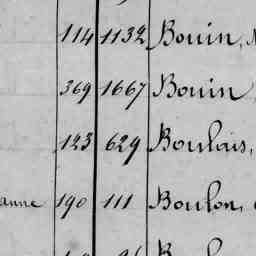 114 1132 Bouin,
369 1667 Bouin
123 629 Boulais,
anne 190 111 Boulon,